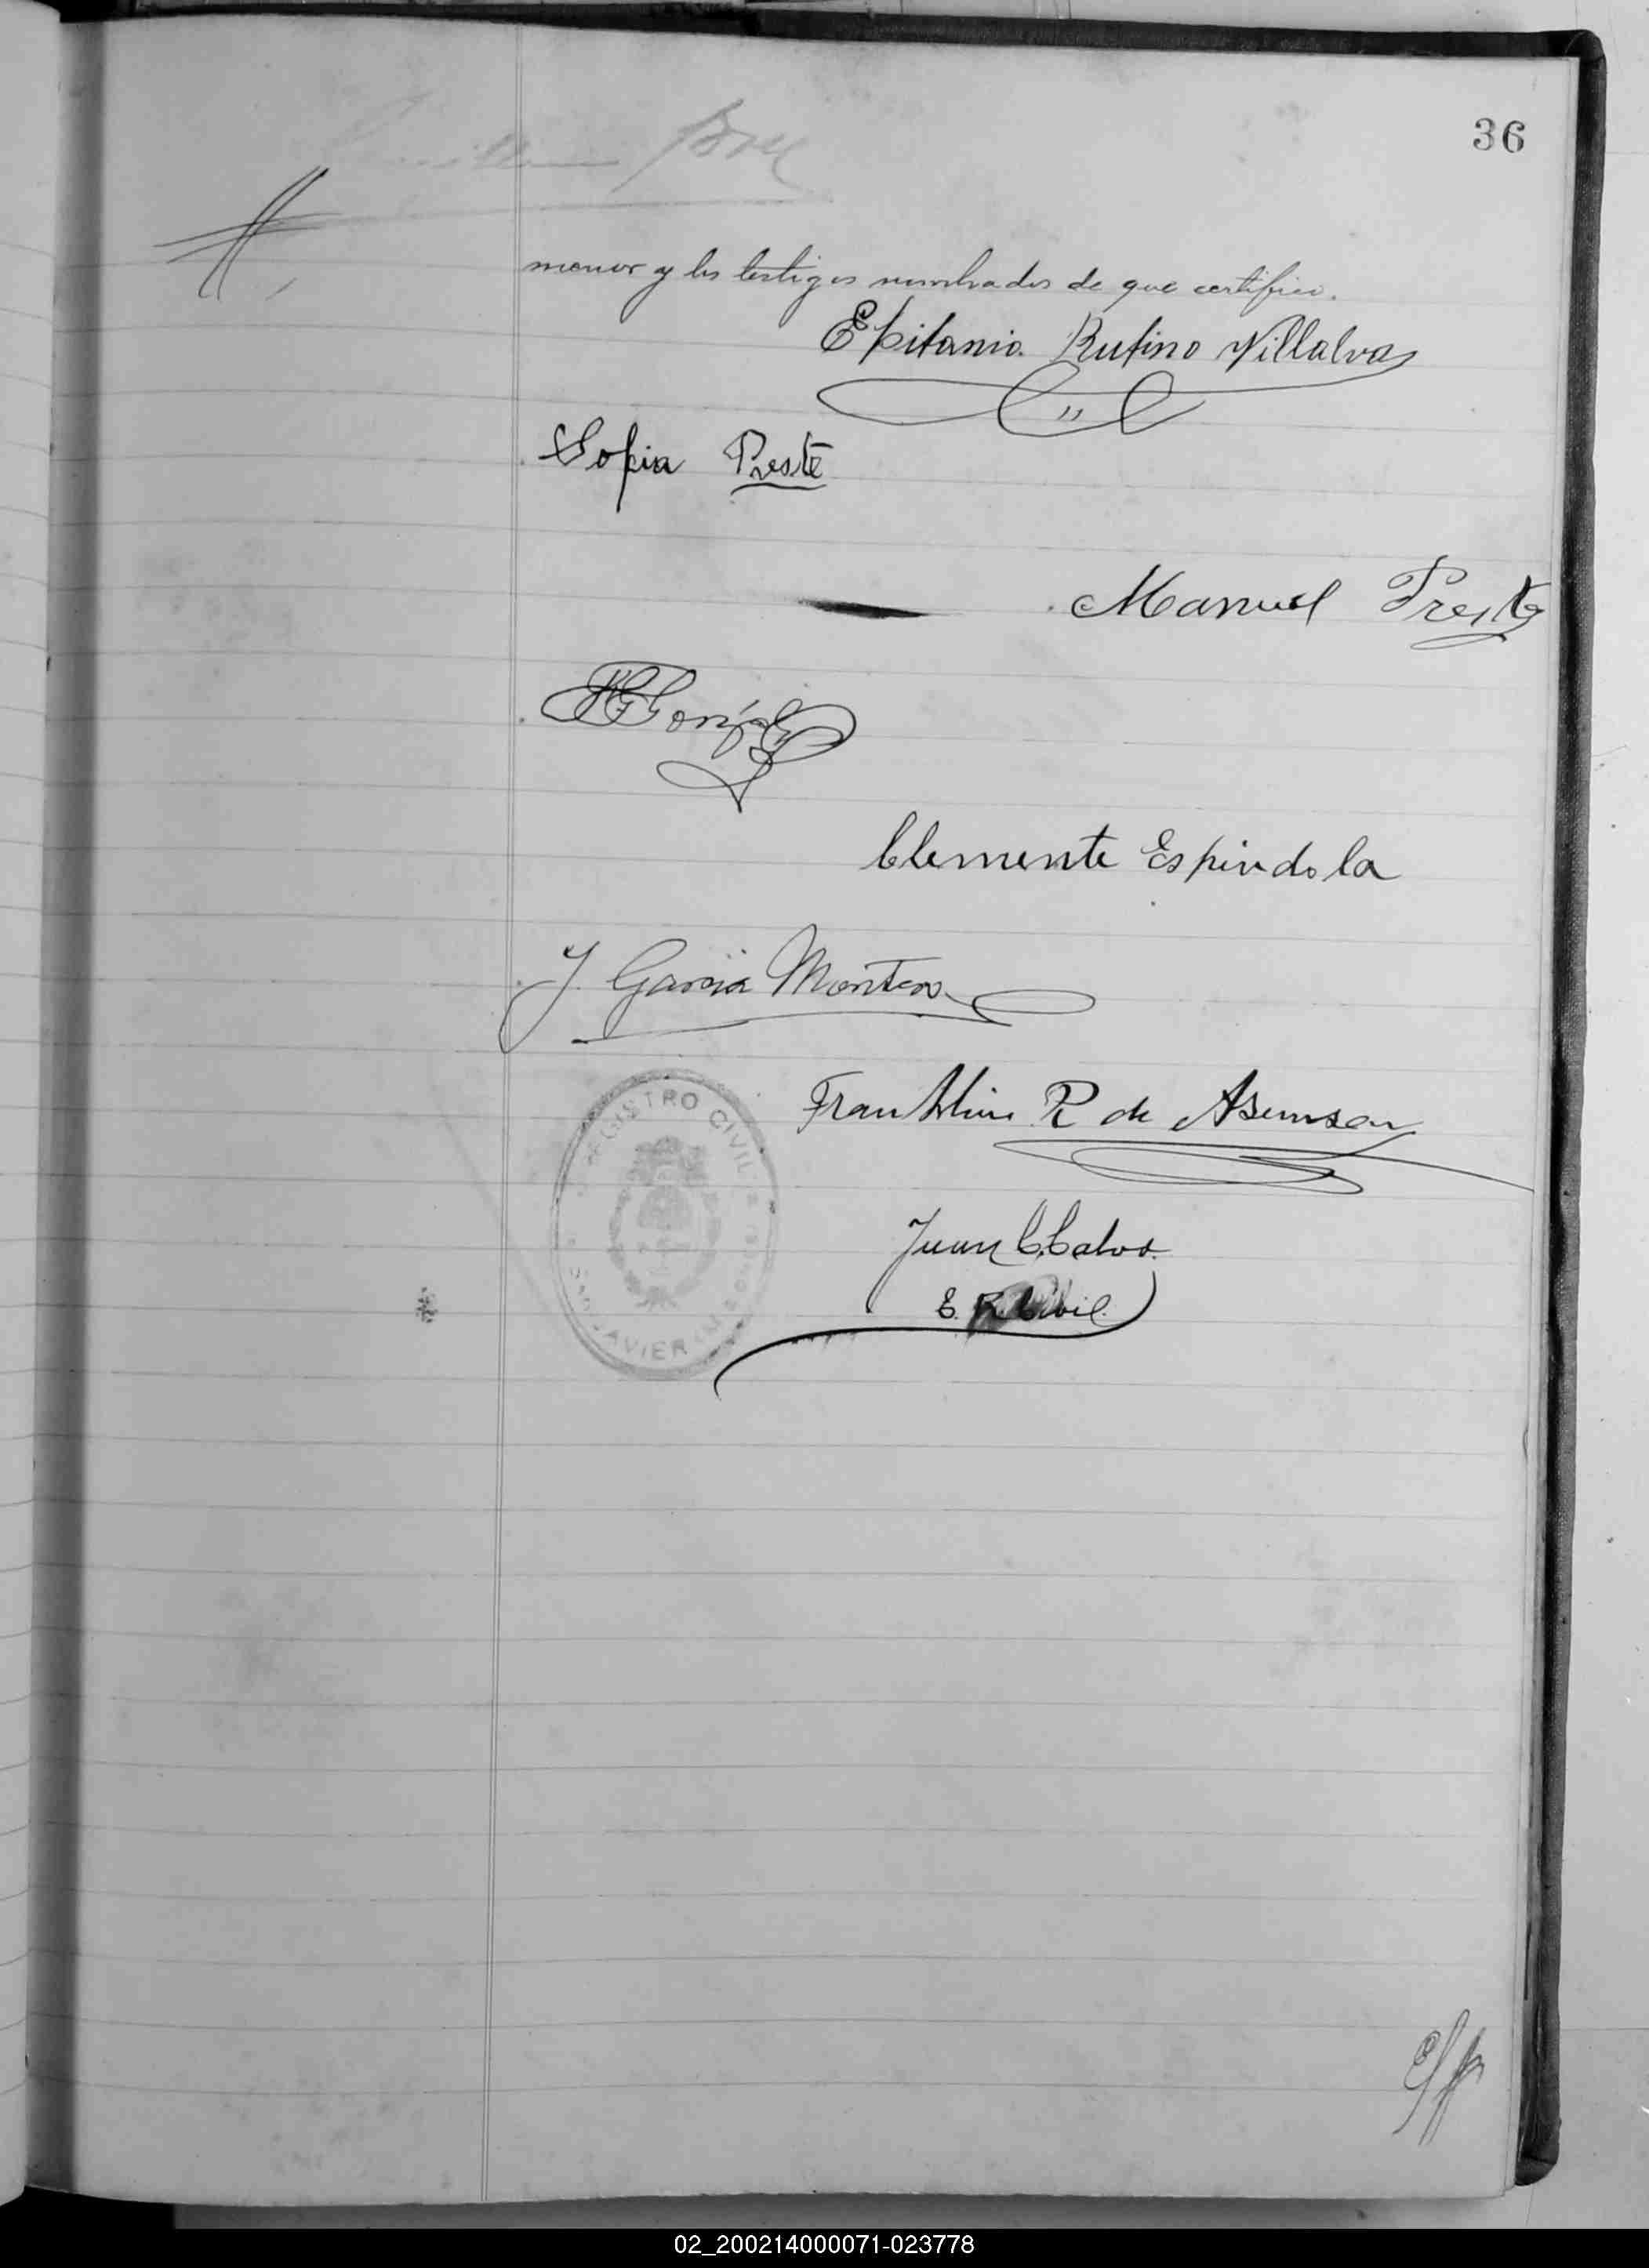 36
menor y los testigos nombrados de que certifico.
Epifanio Rufino Villalva
Sofia Preste
Manuel Preste
Clemente Espindola
J. Garcia Montero
REGISTRO CIVIL
Franklin R de Asenson
Juan C. Calvo
E. R. Civil
JAVIER
02_200214000071-023778